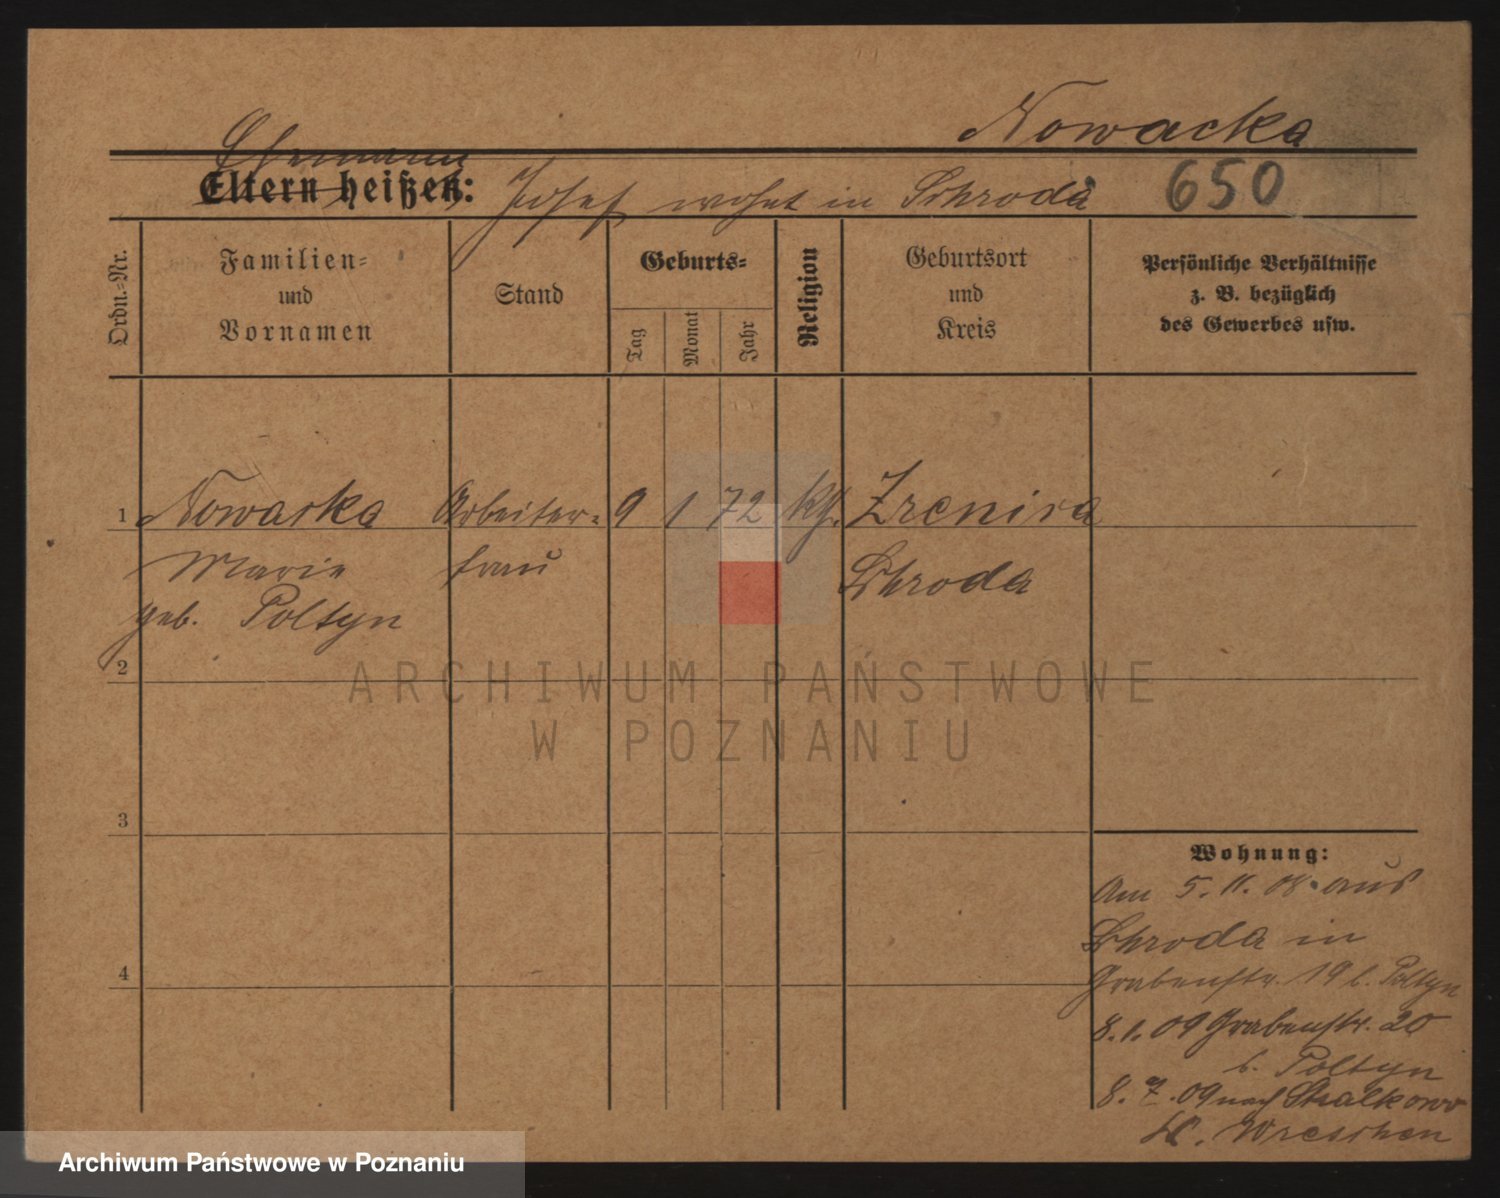 Nowacka
Ehemann
Eltern heißen: Josef wohnt in Schroda 650
Ordn.=Nr.
Familien=
und
Vornamen
Stand
Geburts=
Tag
Monat
Jahr
Religion
Geburtsort
und
Kreis
Persönliche Verhältnisse
z. B. bezüglich
des Gewerbes usw.
1 Nowacka Arbeiter= 9 1 72 kth. Zrenica
Marie frau Schroda
geb. Poltyn
2
3
4
Wohnung:
Am 5. 11. 08. aus
Schroda in
Grabenstr. 19 b. Poltyn
8. 1. 09 Grabenstr. 20
b. Poltyn
8. 7. 09 nach Stralkowo
Kr. Wreschen
ARCHIWUM PAŃSTWOWE
W POZNANIU
Archiwum Państwowe w Poznaniu